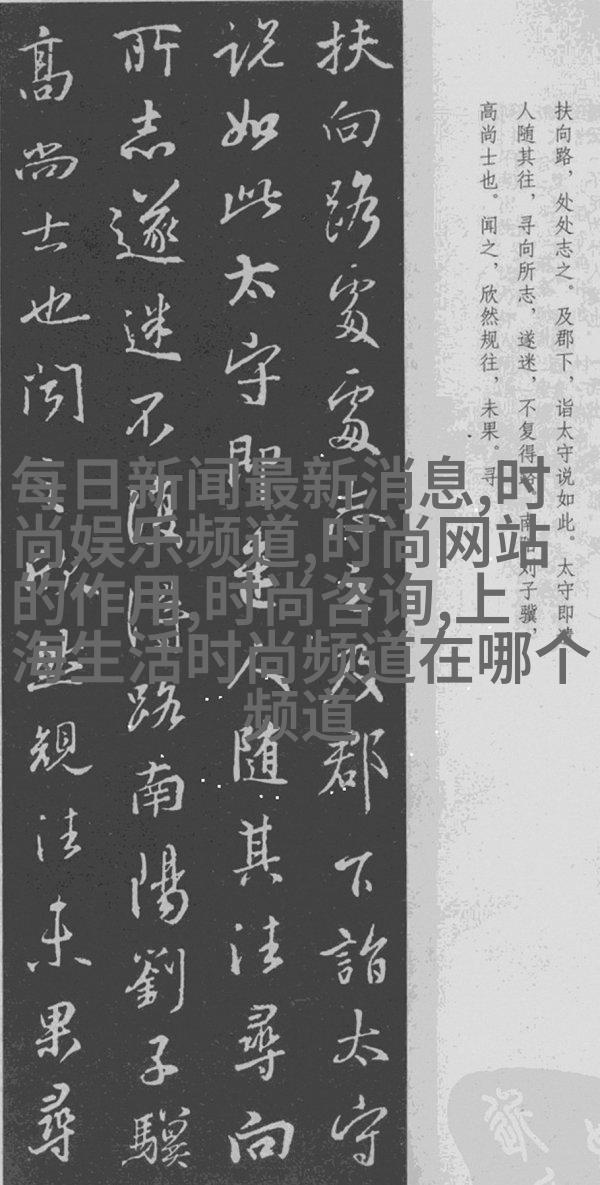 扶向路，处处志之。及郡下，诣太守说如此。太守即遣
人随其往，寻向所志，遂迷，不复得路。南阳刘子骥，
高尚士也。闻之，欣然规往，未果。寻
扶向路處處志之及郡下詣太守
説如此太守即遣人随其往尋向
所志遂迷不復得路南陽劉子驥
高尚士也聞之欣然規往未果尋
每日新闻最新消息,时
尚娱乐频道,时尚网站
的作用,时尚咨询,上
海生活时尚频道在哪个
频道